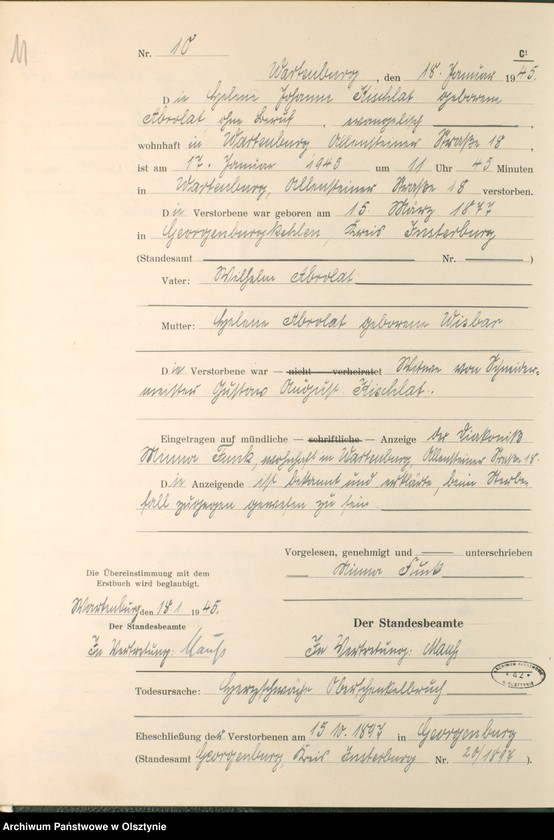 11
Nr. 10
C1
Wartenburg, den 18. Januar 1945.
Die Helene Johanne Kischlat geborene
Abrolat ohne Beruf, evangelisch,
wohnhaft in Wartenburg Allensteiner Straße 18,
ist am 17. Januar 1945 um 11 Uhr 45 Minuten
in Wartenburg, Allensteiner Straße 18 verstorben.
Die Verstorbene war geboren am 15. März 1877
in Georgenburgkehlen, Kreis Insterburg
(Standesamt Nr. )
Vater: Wilhelm Abrolat
Mutter: Helene Abrolat geborene Wisbar
Die Verstorbene war — nicht verheiratet Witwe von Schneider-
meister Gustav August Kischlat.
Eingetragen auf mündliche — schriftliche — Anzeige der Diakoniß
Minna Funk, wohnhaft in Wartenburg, Allensteiner Straße 18.
Die Anzeigende ist bekannt und erklärte, beim Sterbe-
fall zugegen gewesen zu sein
Vorgelesen, genehmigt und unterschrieben
Minna Funk
Die Übereinstimmung mit dem
Erstbuch wird beglaubigt.
Wartenburg, den 18.1 1945.
Der Standesbeamte
In Vertretung:
Der Standesbeamte
In Vertretung:
ARCHIWUM PAŃSTWOWE
* 42 *
W OLSZTYNIE
Todesursache: Herzschwäche Oberschenkelbruch
Eheschließung der Verstorbenen am in Georgenburg
(Standesamt Georgenburg, Kreis Insterburg Nr. ).
Archiwum Państwowe w Olsztynie